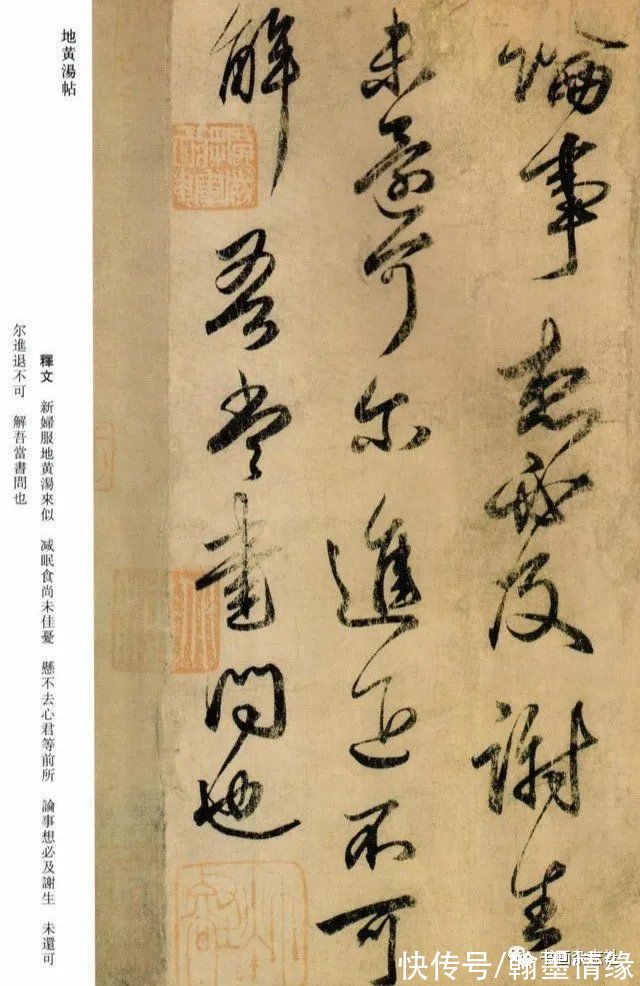 論事想必及謝生
未還可尔進退不可
解吾當書問也
地黃湯帖
釋文 新婦服地黃湯來似 减眠食尚未佳憂 懸不去心君等前所 論事想必及謝生 未還可
尔進退不可 解吾當書問也
快传号/翰墨情缘